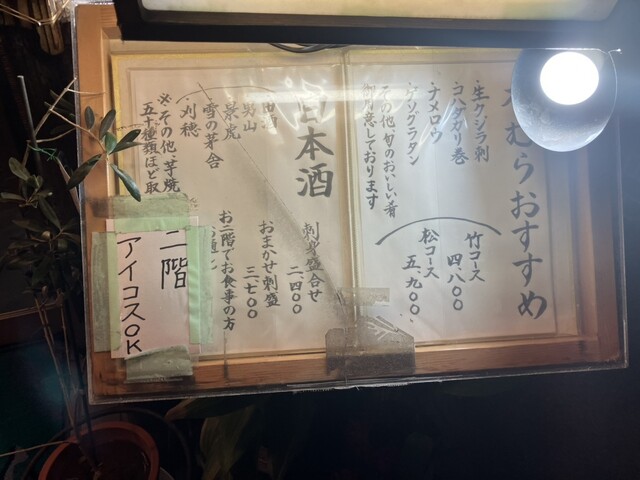 むらおすすめ
生クジラ刺
コハダガリ巻
ナメロウ
ゲソグラタン
その他、旬のおいしい肴
御用意しております
竹コース
四、八〇〇
松コース
五、九〇〇
日本酒
田酒
男山
景虎
雪の茅舎
刈穂
※その他、芋焼
五十種類ほど取
刺身盛合せ
二、四〇〇
おまかせ刺盛
三、七〇〇
お二階でお食事の方
二階
アイコスOK